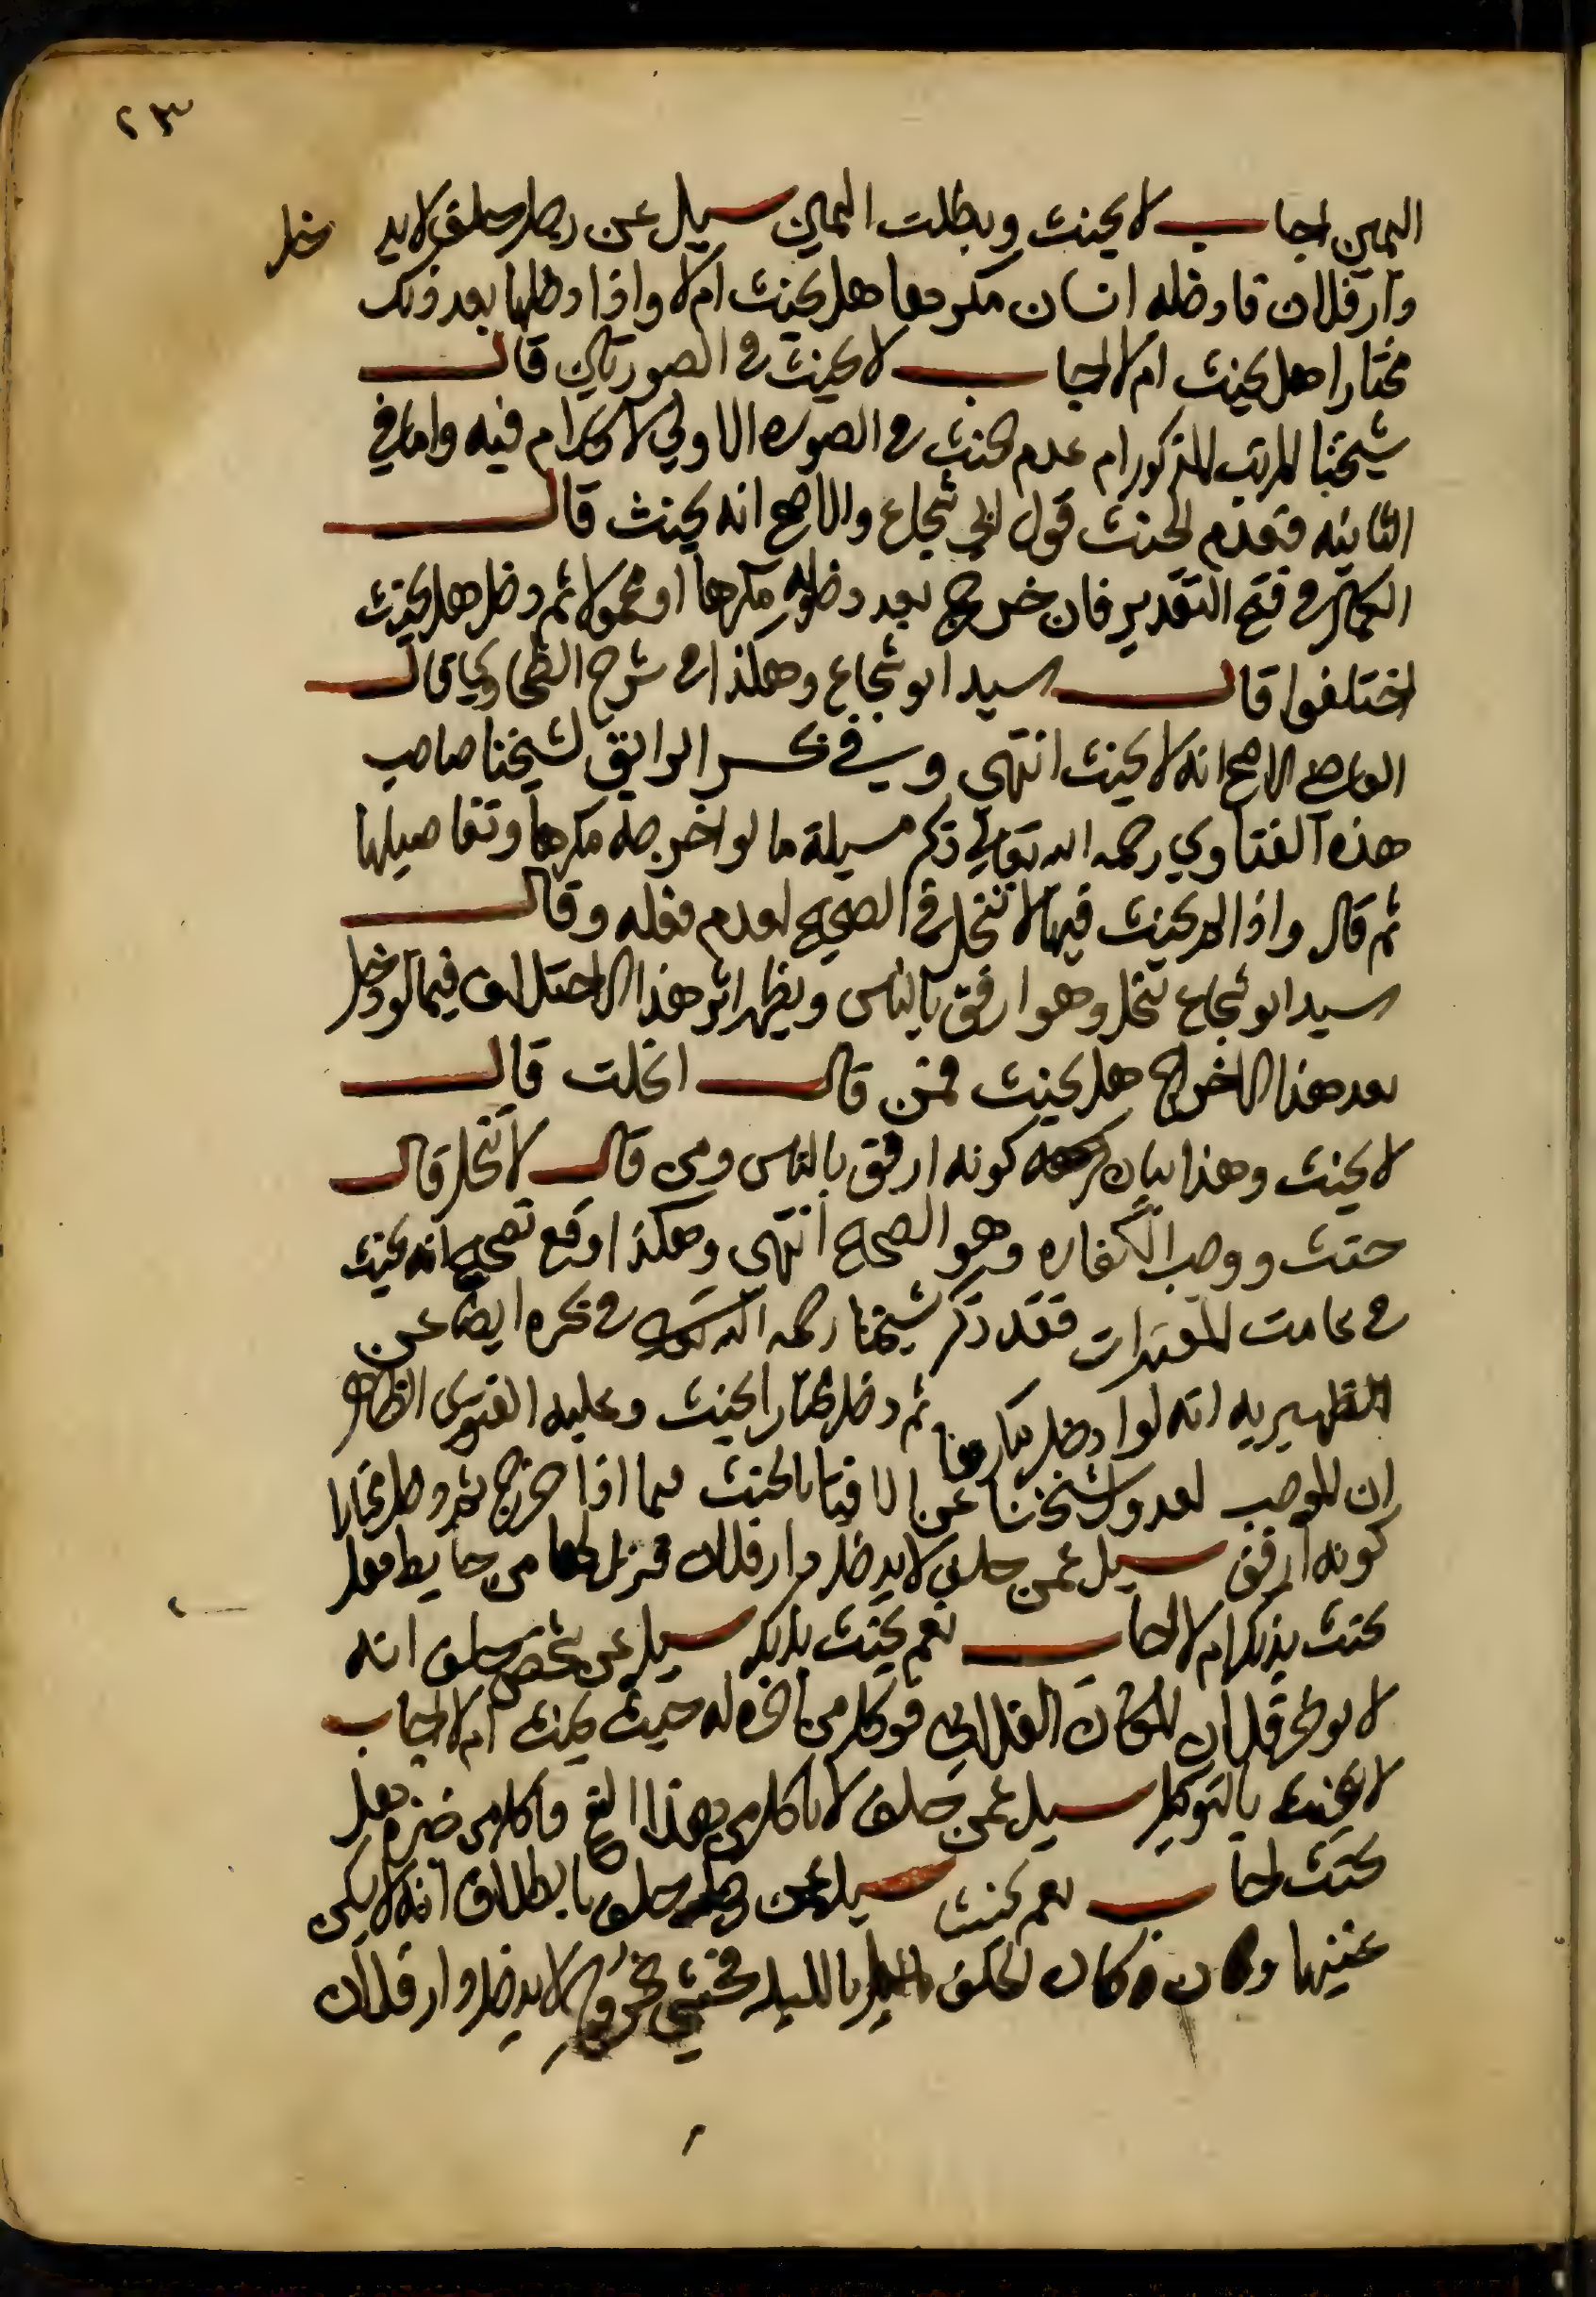 ٢٣
اليمين اجاب لا يحنث وبطلت اليمين سيل عن رجل حلف لا يد خل
دار فلان فادخله انسان مكرها هل يحنث ام لا واذا دخلها بعد ذلك
مختارا هل يحنث ام لا اجاب لا يحنث في الصورتين قال
شيخنا المرتب المذكور ام عدم الحنث في الصوره الاولي لا كلام فيه واما في
الثانيه فعدم الحنث قول ابي شجاع والاصح انه يحنث قال
الكمال في فتح التقدير فان خرج بعد دخوله مكرها او محمولا ثم دخل هل يحنث
اختلفوا قال السيد ابو شجاع وهكذا في شرح الطحاوي قال
لا يحنث انتهي وفي بحر الرايق لشيخنا صاحب
هذه الفتاوي رحمه الله تعالي ذكر مسيلة ما لو اخرجه مكرها وتفاصيلها
ثم قال واذا لم يحنث فيها لا تنحل في الصحيح لعدم فعله وقال
السيد ابو شجاع تنحل وهو ارفق بالناس ويظهر اثر هذا الاختلاف فيما لو دخل
بعد هذا الاخراج هل يحنث فمن قال انحلت قال
لا يحنث وهذا بيان كونه ارفق بالناس ومن قال لا تنحل قال
حنث ووجب الكفاره وهو الصحيح انتهي وهكذا وقع تصحيح انه يحنث
في عامت المعتبرات فقد ذكر شيخنا رحمه الله تعالي في بحره ايضا عن
الظهيريه انه لو ادخل مكارها ثم دخل مختارا يحنث وعليه الفتوي الظاهر
ان الموجب لعدول شيخنا عن الافتا بالحنث فيما اذا خرج ثم دخل مختارا
كونه ارفق سيل عمن حلف لا يدخل دار فلان فنزل لها من حايط فهل
يحنث بذلك ام لا اجاب نعم يحنث بذلك سيل عن شخص حلف انه
لا فلان المكان الفلاني فوكل من له حيث يحنث ام لا اجاب
لا يحنث بالتوكيل سيل عمن حلف لا ياكل من هذا القمح فاكل من خبزه فهل
يحنث اجاب نعم يحنث سيل عن رجل حلف بالطلاق انه لا
وكان الحلف بالليل لا يدخل دار فلان